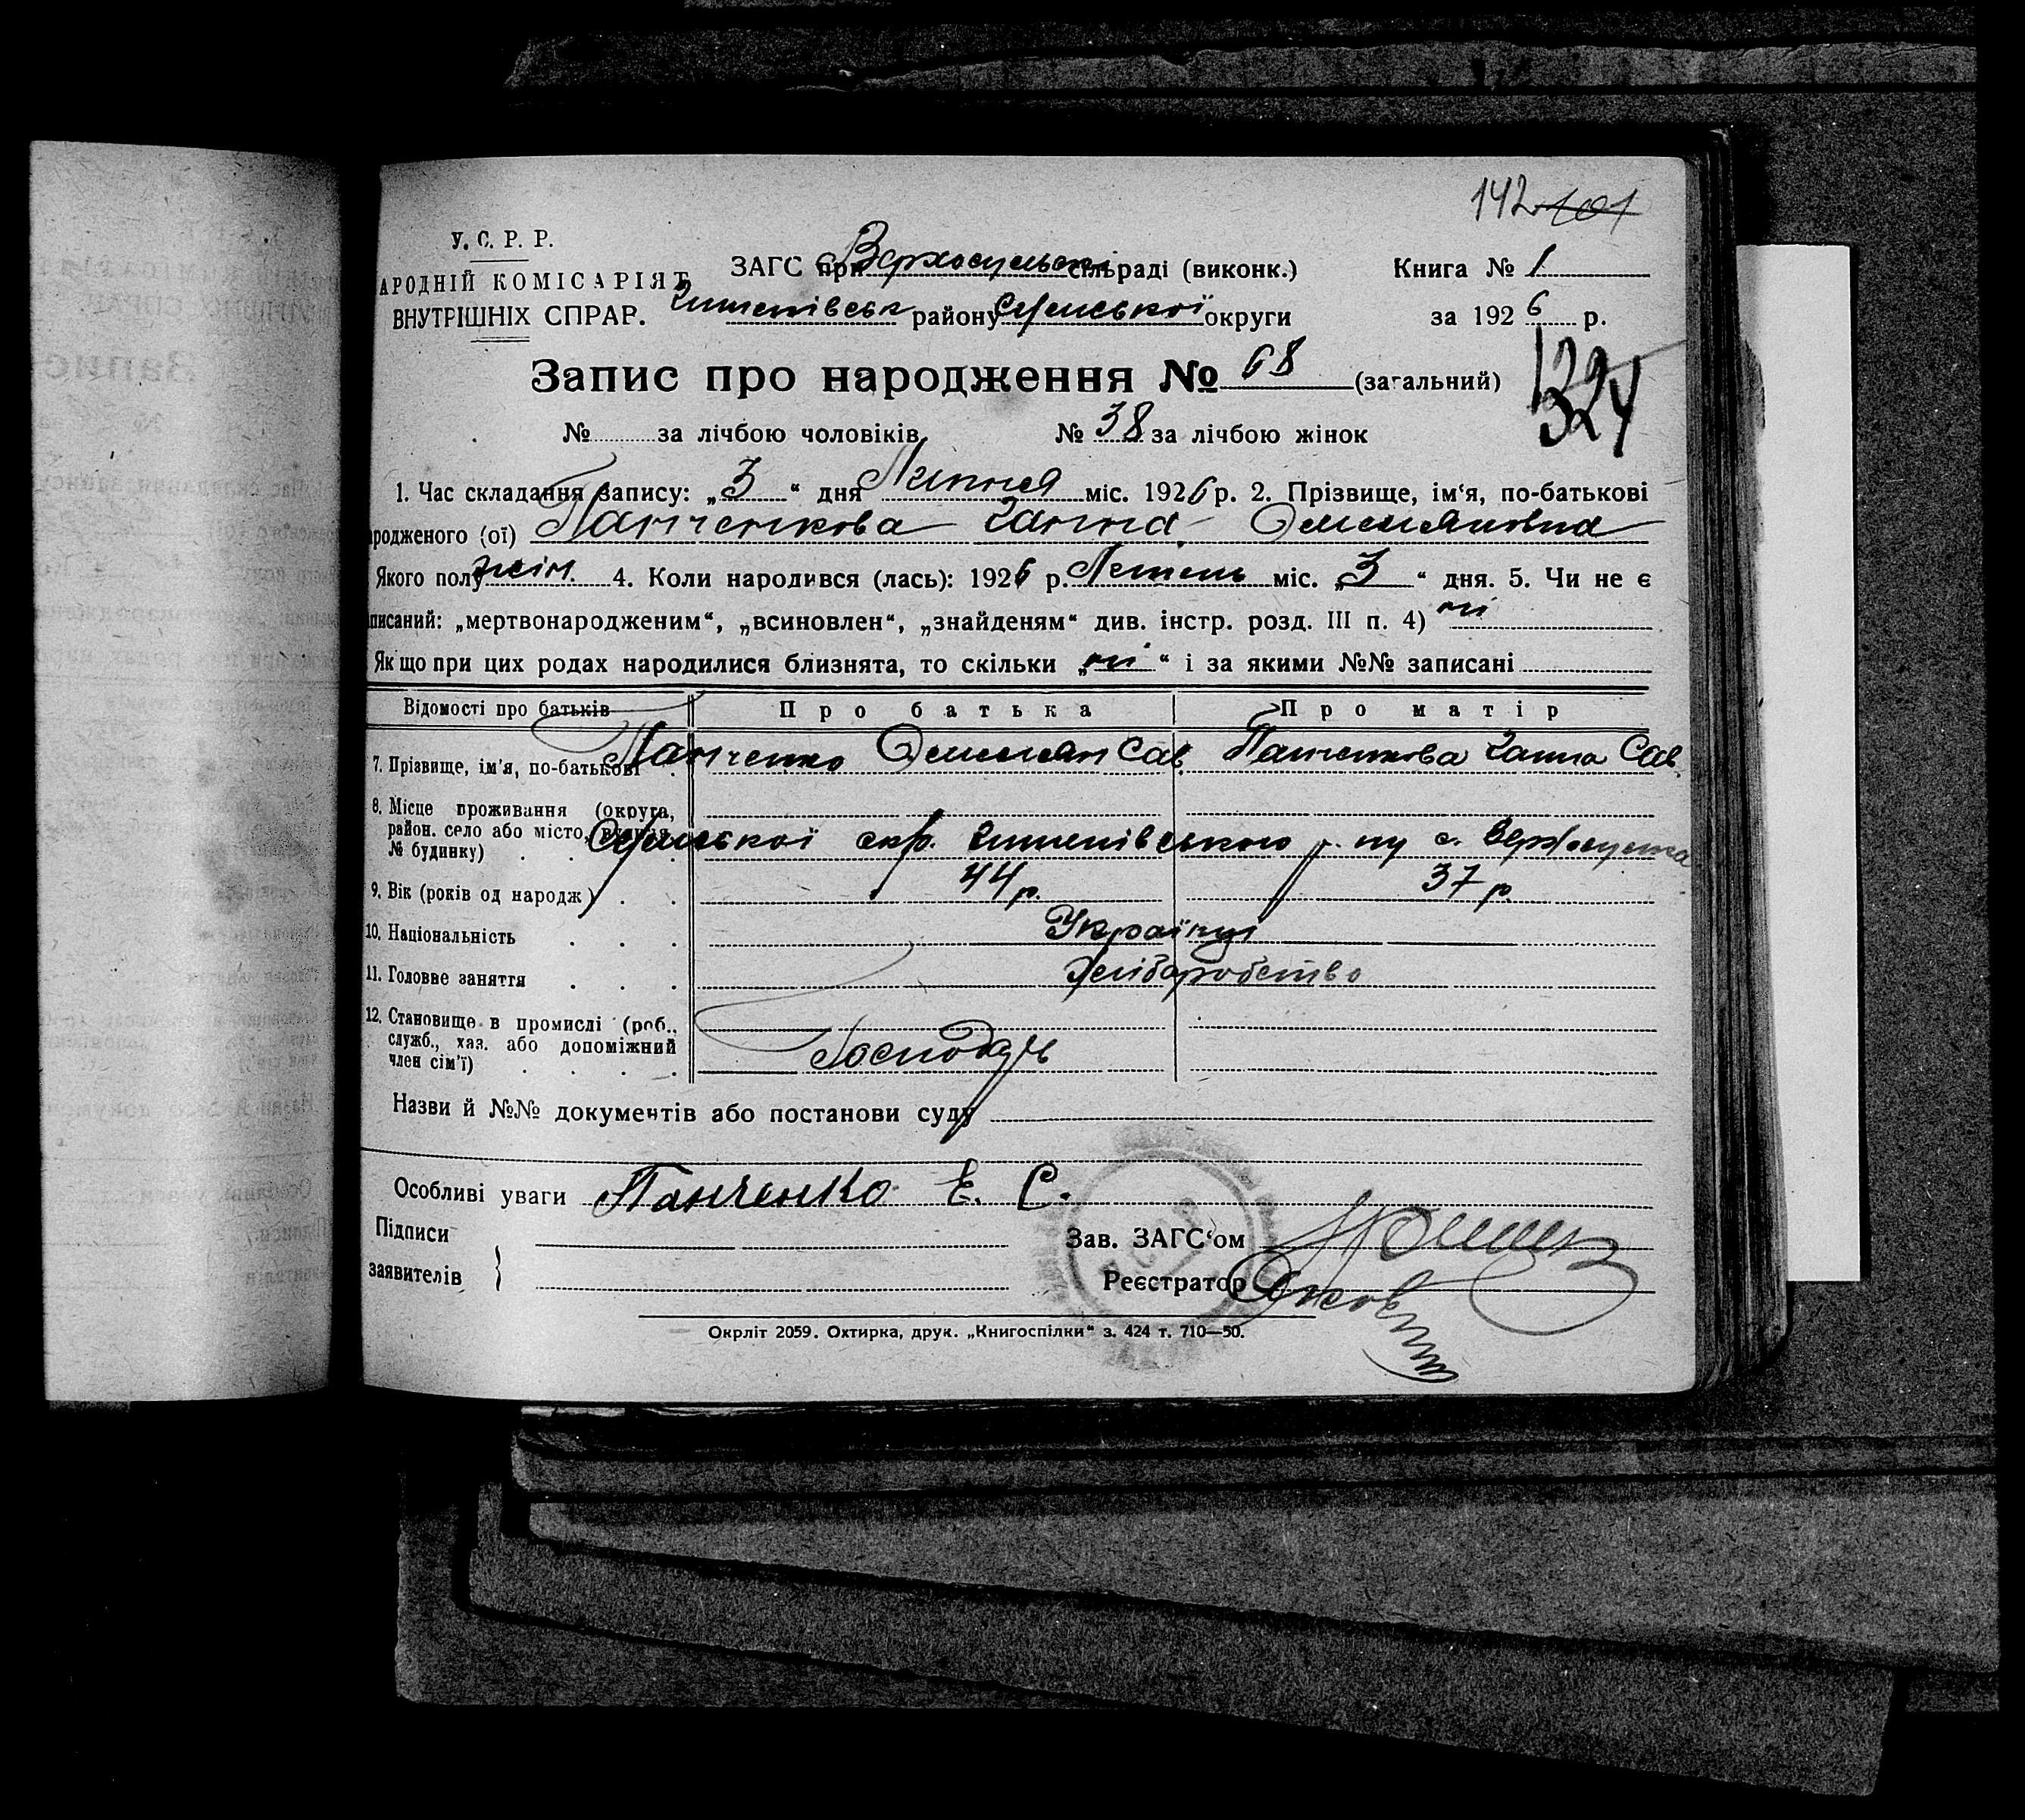 142 101
У. С. Р. Р.
АРОДНІЙ КОМІСАРІЯТ
ВНУТРІШНІХ СПРАР.
ЗАГС при Верхосульскі сільраді (виконк.)
районy Сумської округи
Книга № 1
за 1926 р.
Запис про народження № 68 (загальний)
№ за лічбою чоловіків № 38 за лічбою жінок
1. Час складання запису: „3“ дня Липня міс. 1926 р. 2. Прізвище, ім‘я, по-батькові
родженого (ої) Панченкова Ганна Омеляновна
Якого полу жін. 4. Коли народився (лась): 1926 р. Липень міс. „3“ дня. 5. Чи не є
писаний: „мертвонародженим“, „всиновлен“, „знайденям“ див. інстр. розд. III п. 4) ні
Якщо при цих родах народилися близнята, то скільки „ні“ і за якими №№ записані
Відомості про батьків Про батька Про матір
7. Прізвище, ім'я, по-батькові Панченко Омелян Сав. Панченкова Ганна Сав.
8. Місце проживання (округа,
район. село або місто, вулиця,
№ будинку)
Сумської окр. Штепівського р-ну с. Верхосулка
9. Вік (років од народж) 44 р. 37 р.
10. Національність Українці
11. Головне заняття Хліборобство
12. Становище в промислі (роб.,
служб., хаз. або допоміжний
член сім'ї)
Господар
Назви й №№ документів або постанови суду
Особливі уваги Панченко Е. С.
Підписи
заявителів
Зав. ЗАГС‘ом
Реєстратор
Окрліт 2059. Охтирка, друк. „Книгоспілки“ з. 424 т. 710—50.